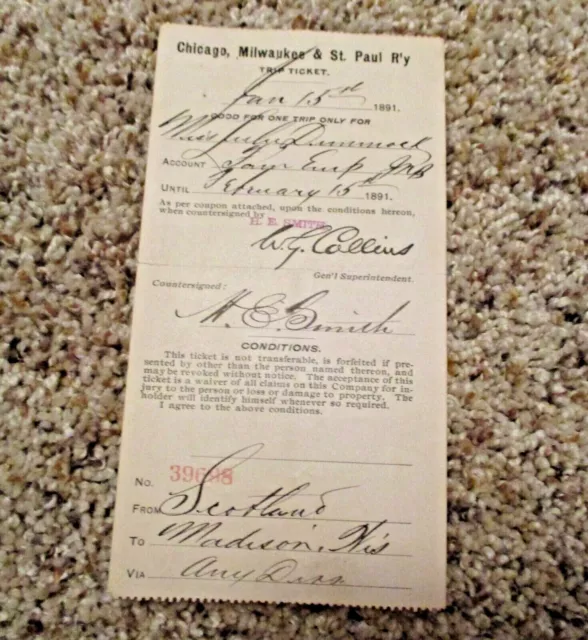 Chicago, Milwaukee & St. Paul R'y
TRIP TICKET.
Jan 15 1891.
GOOD FOR ONE TRIP ONLY FOR
Miss July Dimmock
ACCOUNT
UNTIL February 15 1891.
As per coupon attached, upon the conditions hereon,
when countersigned by
H. E. SMITH
W. G. Collins
Gen'l Superintendent.
Countersigned:
H. E. Smith
CONDITIONS.
This ticket is not transferable, is forfeited if pre-
sented by other than the person named thereon, and
may be revoked without notice. The acceptance of this
ticket is a waiver of all claims on this Company for in-
jury to the person or loss or damage to property. The
holder will identify himself whenever so required.
I agree to the above conditions.
No. 39698
FROM Scotland
TO Madison, Wis
VIA Any Div